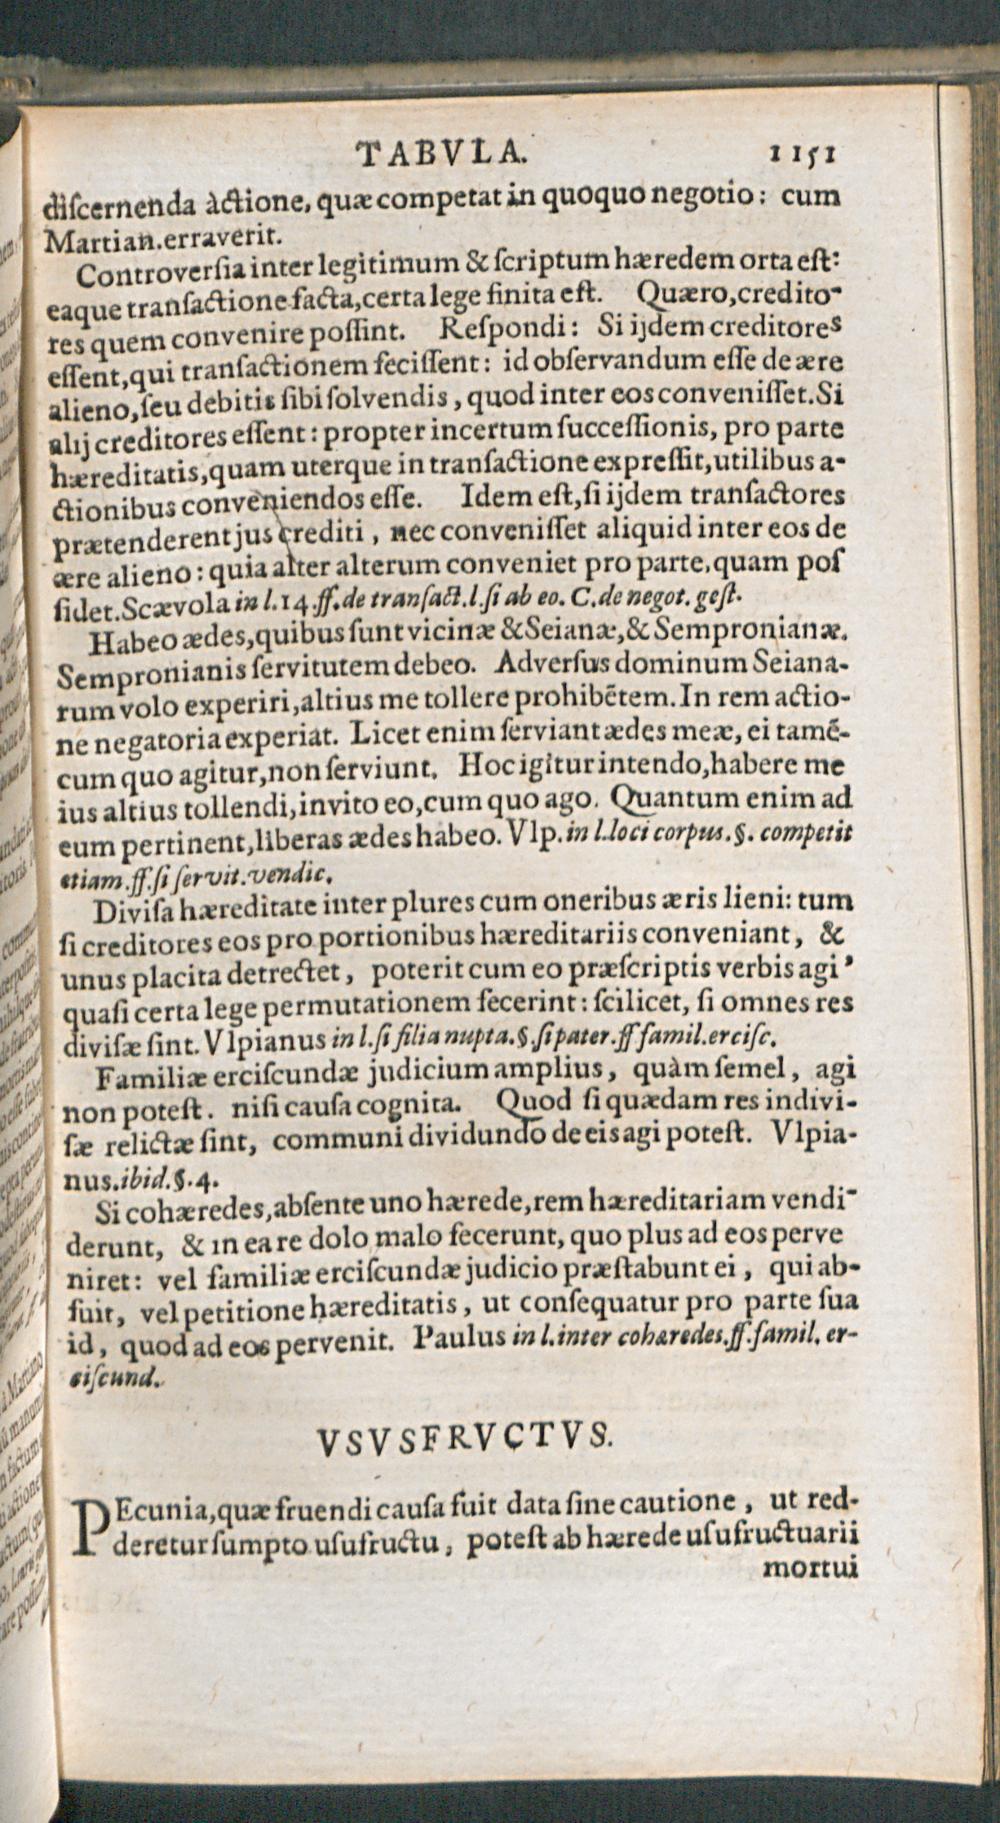 TABVLA. 1151
diſcernenda àctione, quæ competat in quoquo negotio: cum
Martian. erraverit.
Controverſia inter legitimum & ſcriptum hæredem orta eſt:
eaque tranſactione facta, certa lege finita eſt. Quæro, credito-
res quem convenire poſſint. Reſpondi: Si ijdem creditores
eſſent, qui tranſactionem feciſſent: id obſervandum eſſe de ære
alieno, ſeu debitis ſibi ſolvendis, quod inter eos conveniſſet. Si
alij creditores eſſent: propter incertum ſucceſſionis, pro parte
hæreditatis, quam uterque in tranſactione expreſſit, utilibus a-
ctionibus conveniendos eſſe. Idem eſt, ſi ijdem tranſactores
prætenderent jus crediti, nec conveniſſet aliquid inter eos de
ære alieno: quia alter alterum conveniet pro parte, quam poſ
ſidet. Scævola in l. 14. ff. de tranſact. l. ſi ab eo. C. de negot. geſt.
Habeo ædes, quibus ſunt vicinæ & Seianæ, & Sempronianæ.
Sempronianis ſervitutem debeo. Adverſus dominum Seiana-
rum volo experiri, altius me tollere prohibētem. In rem actio-
ne negatoria experiat. Licet enim ſerviant ædes meæ, ei tamē-
cum quo agitur, non ſerviunt. Hoc igitur intendo, habere me
ius altius tollendi, invito eo, cum quo ago. Quantum enim ad
eum pertinent, liberas ædes habeo. Vlp. in l. loci corpus. §. competit
etiam. ff. ſi ſervit. vendic.
Diviſa hæreditate inter plures cum oneribus æris lieni: tum
ſi creditores eos pro portionibus hæreditariis conveniant, &
unus placita detrectet, poterit cum eo præſcriptis verbis agi'
quaſi certa lege permutationem fecerint: ſcilicet, ſi omnes res
diviſæ ſint. Vlpianus in l. ſi filia nupta. §. ſi pater. ff famil. erciſc.
Familiæ erciſcundæ judicium amplius, quàm ſemel, agi
non poteſt. niſi cauſa cognita. Quod ſi quædam res indivi-
ſæ relictæ ſint, communi dividundo de eis agi poteſt. Vlpia-
nus. ibid. §. 4.
Si cohæredes, abſente uno hærede, rem hæreditariam vendi-
derunt, & in ea re dolo malo fecerunt, quo plus ad eos perve
niret: vel familiæ erciſcundæ judicio præſtabunt ei, qui ab-
fuit, vel petitione hæreditatis, ut conſequatur pro parte ſua
id, quod ad eos pervenit. Paulus in l. inter cohæredes. ff. famil. er-
ciſcund.
VSVSFRVCTVS.
PEcunia, quæ fruendi cauſa fuit data ſine cautione, ut red-
deretur ſumpto uſufructu, poteſt ab hærede uſufructuarii
mortui